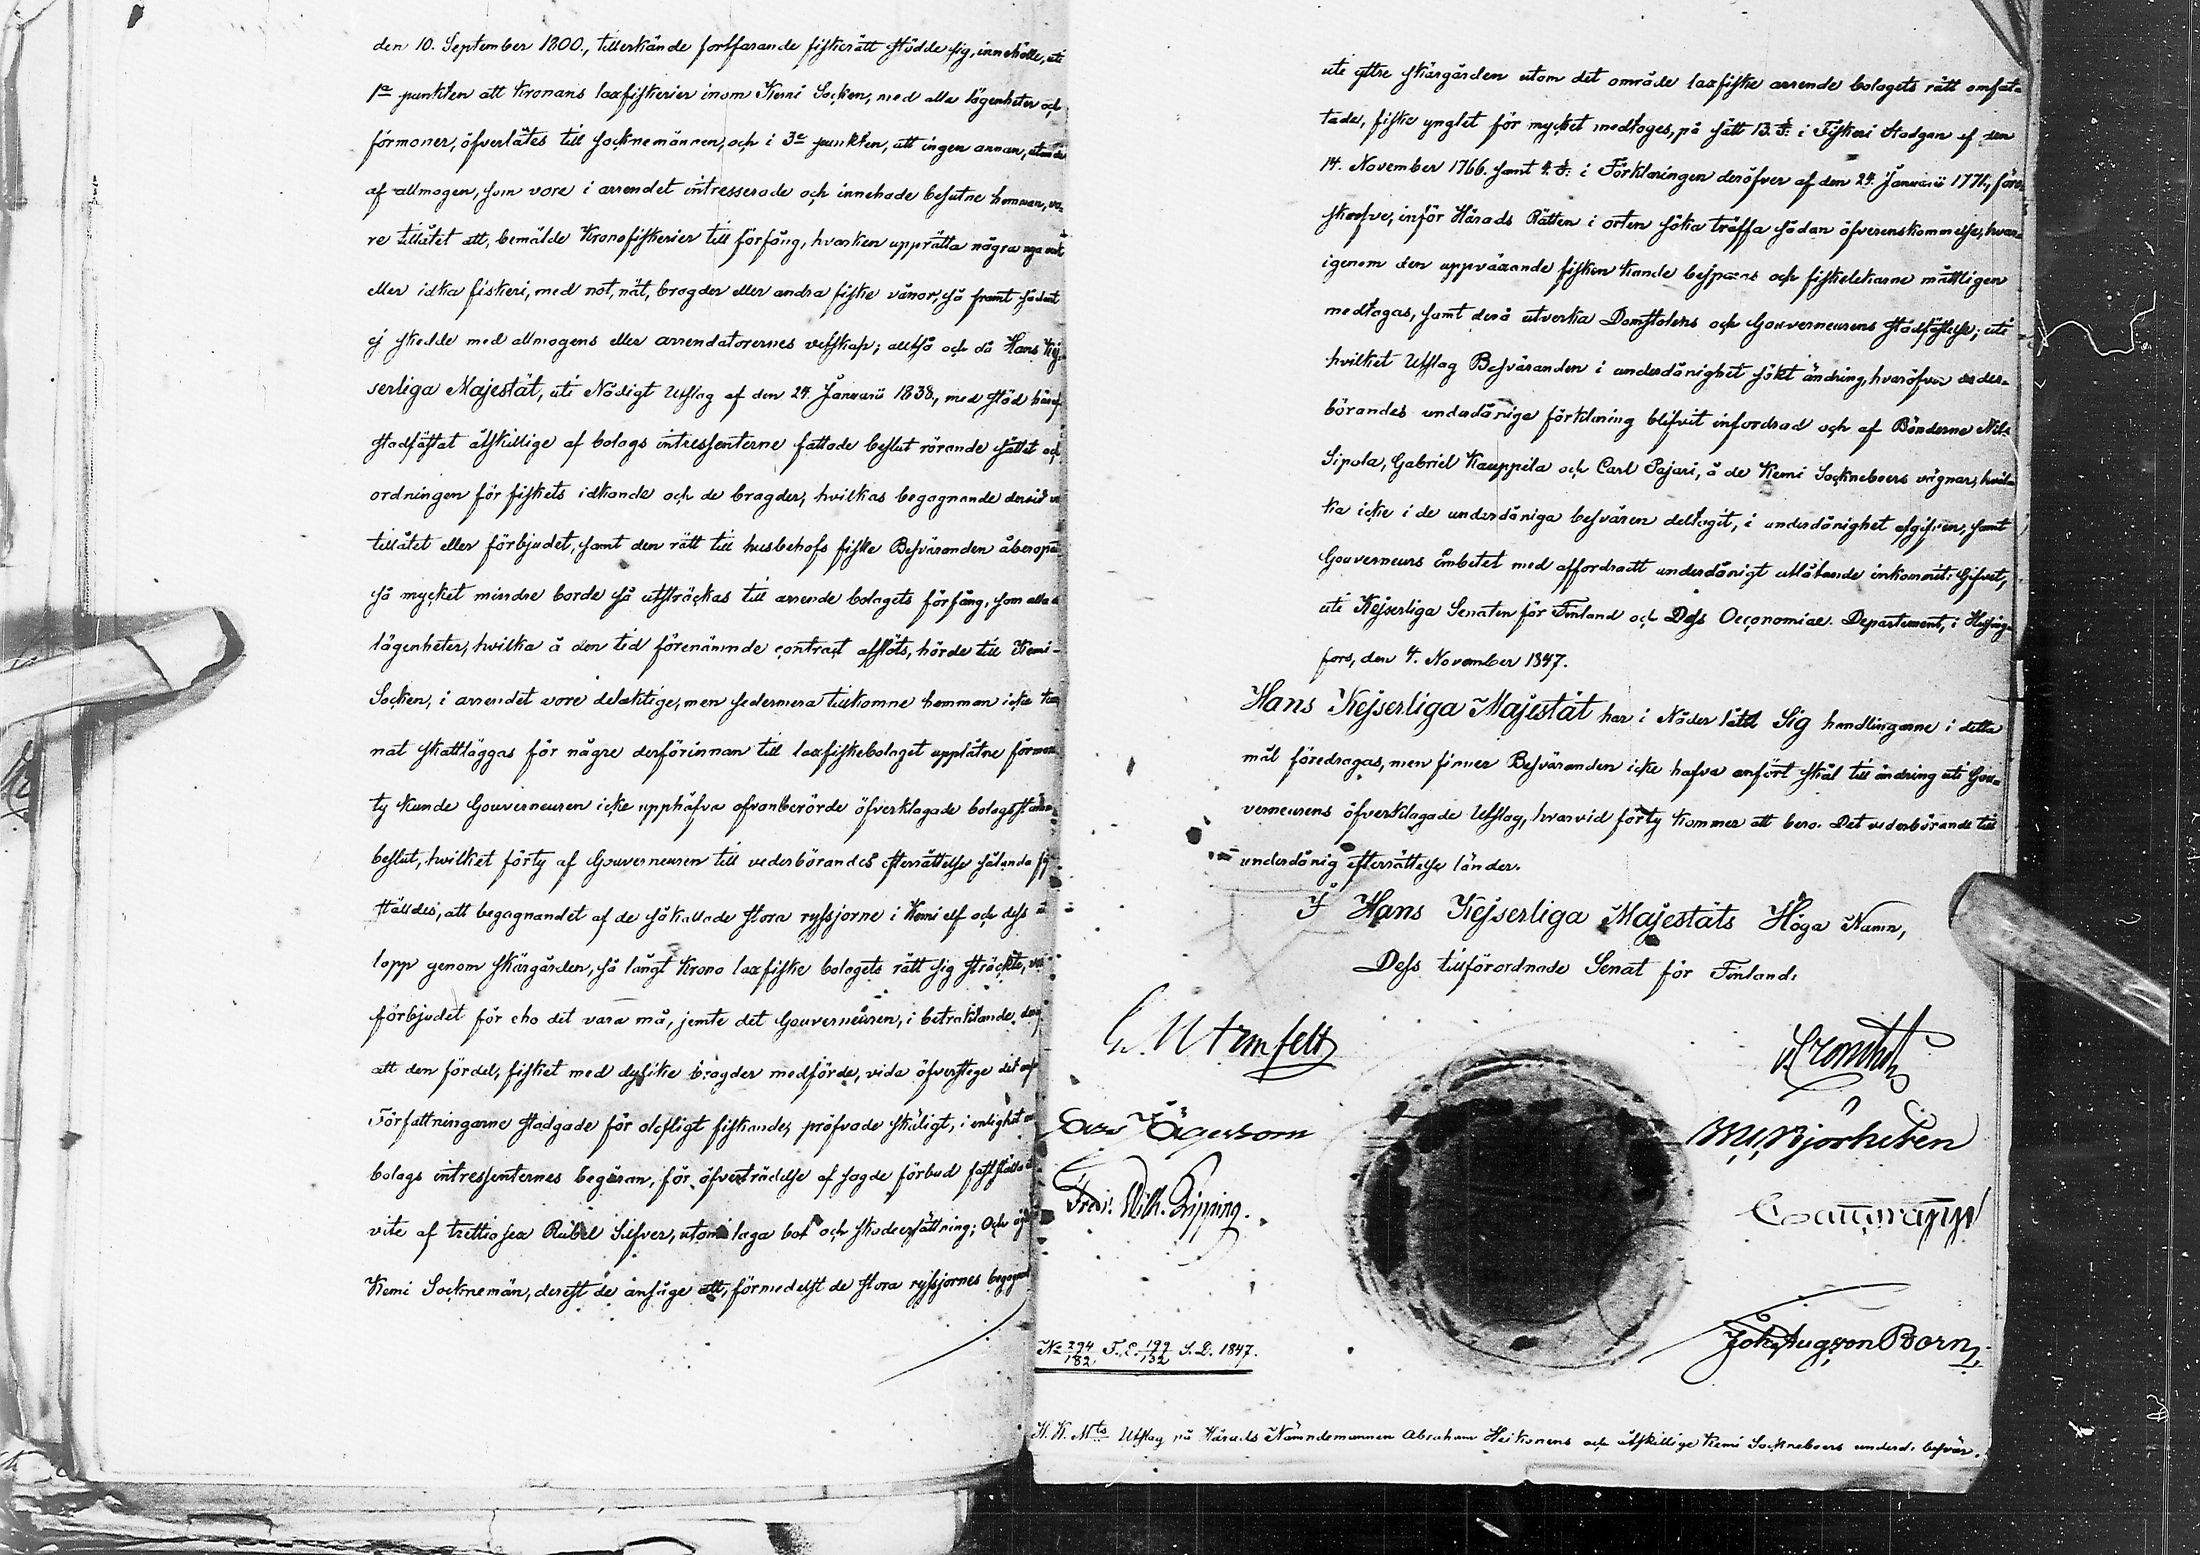 den 10. September 1800., tillerkände fortfarande fiskerätt stödde sig, innehölle, uti
1a punkten att Kronans laxfiskerier inom Kemi Socken, med alla lägenheter och
förmoner, öfverlåtes till socknemännen, och i 3e punkten, att ingen annan, utom de
af allmogen, som vore i arrendet intresserade och innehade besutne hemman, vo-
re tillåtet att, bemälde Kronofiskerier till förfång, hvarken upprätta några nya
eller idka fiskeri, med not, nät, bragder eller andra fiske vånor, så framt sådant
ej skedde med allmogens eller arrendatorernes vetskap; alltså och då Hans Kej-
serliga Majestät, uti Nådigt Utslag af den 24. Januarii 1838., med stöd häraf
stadfästat åtskillige af bolags intressenterne fattade beslut rörande sättet och
ordningen för fiskets idkande och de bragder, hvilkas begagnande dervid
tillåtet eller förbjudet, samt den rätt till husbehofs fiske Besväranden åberopa
så mycket mindre borde få utsträckas till arrende bolagets förfång, som alla
lägenheter, hvilka å den tid förenämnde contract afslöts, hörde till Kemi-
Socken, i arrendet vore delaktige, men sedermera tillkomne hemman icke kun
nat skattläggas för någre derförinnan till laxfiskebolaget upplåtne förmon
ty kunde Gouverneuren icke upphäfva ofvanberörde öfverklagade bolagsstämmo
beslut, hvilket förty af Gouverneuren till vederbörandes efterrättelse sålunda
ställdes, att begagnandet af de så kallade stora ryssjorne i Kemi elf och dess ut
lopp genom skärgården, så långt Krono laxfiske bolagets rätt sig sträckte,
förbjudet för eho det vara må, jemte det Gouverneuren, i betraktande deraf
att den fördel, fisket med dylike bragder medförde, vida öfverstege det
Författningarne stadgade för olofligt fiskande, pröfvade skäligt, i enlighet
bolags intressenternes begäran, för öfverträdelse af sagde förbud fastställa
vite af trettiosex Rubel Silfver, utom laga bot och skadeersättning; Och
Kemi Socknemän, derest de ansåge att, förmedelst de stora ryssjornes begagnande
uti yttre skärgården utom det område laxfiske arrende bolagets rätt omfat-
tade, fiske ynglet för mycket medtoges, på sätt 13. §. i Fiskeri Stadgan af den
14. November 1766. samt 4. §. i Förklaringen deröfver af den 24. Januarii 1771, före-
skrefve, inför Härads Rätten i orten söka träffa sådan öfverenskommelse, hvar-
igenom den uppväxande fisken kunde besparas och fiskelekarne måttligen
medtagas, samt derå utverka Domstolens och Gouverneurens stadfästelse; uti
hvilket Utslag Besväranden i underdånighet sökt ändring, hvaröfver veder-
börandes underdåniga förklaring blifvit infordrad och af Bönderne Nils
Sipola, Gabriel Kauppila och Carl Pajari, å de Kemi Sockneboers vägnar, hvil-
ka icke i de underdåniga besvären deltagit, i underdånighet afgifven, samt
Gouverneurs Embetet med affordradt underdånigt utlåtande inkommit: Gifvet,
uti Kejserliga Senaten för Finland och Dess Oeconomiae. Departement, i Helsing-
fors, den 4. November 1847.
Hans Kejserliga Majestät har i Nåder låtit Sig handlingarne i detta
mål föredragas, men finner Besväranden icke hafva anfört skäl till ändring uti Gou-
verneurens öfverklagade Utslag, hvarvid förty kommer att bero. Det vederbörande till
underdånig efterrättelse länder.
I Hans Kejserliga Majestäts Höga Namn,
Dess tillförordnade Senat för Finland:
G. M. Armfelt
Fredr. Wilh. Pipping.
Björksten
Joh. Aug. von Born
No 294/182. F. E. 199/132 S. D. 1847.
H. K. Mts Utslag på Härads Nämndemannen Abraham Heikonens och åtskillige Kemi Sockneboers underd. besvär.